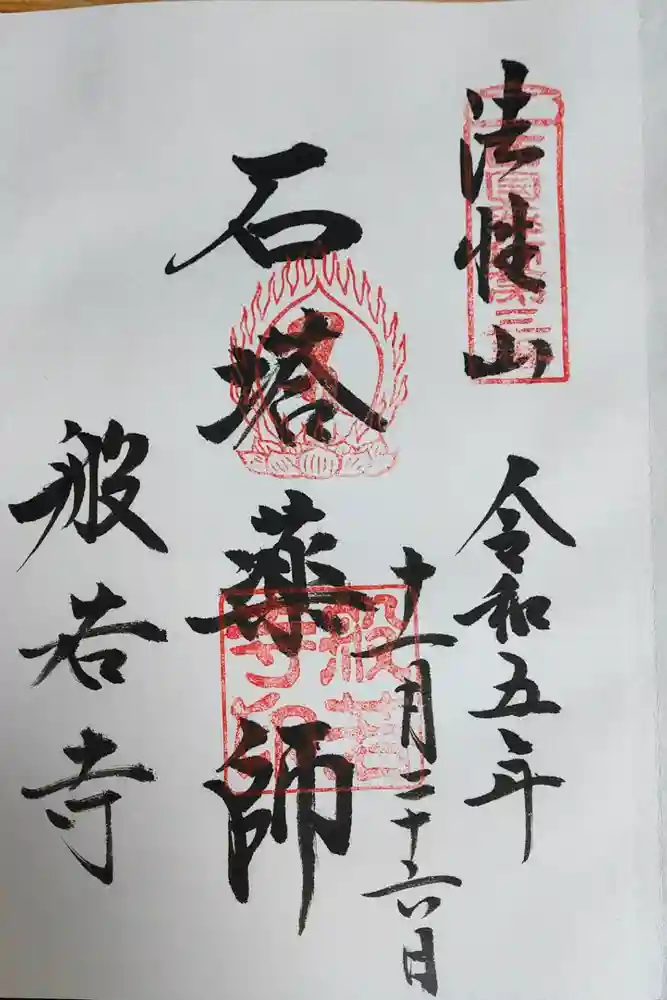 法性山
令和五年
十一月二十六日
石塔薬師
般若
寺印
般若寺